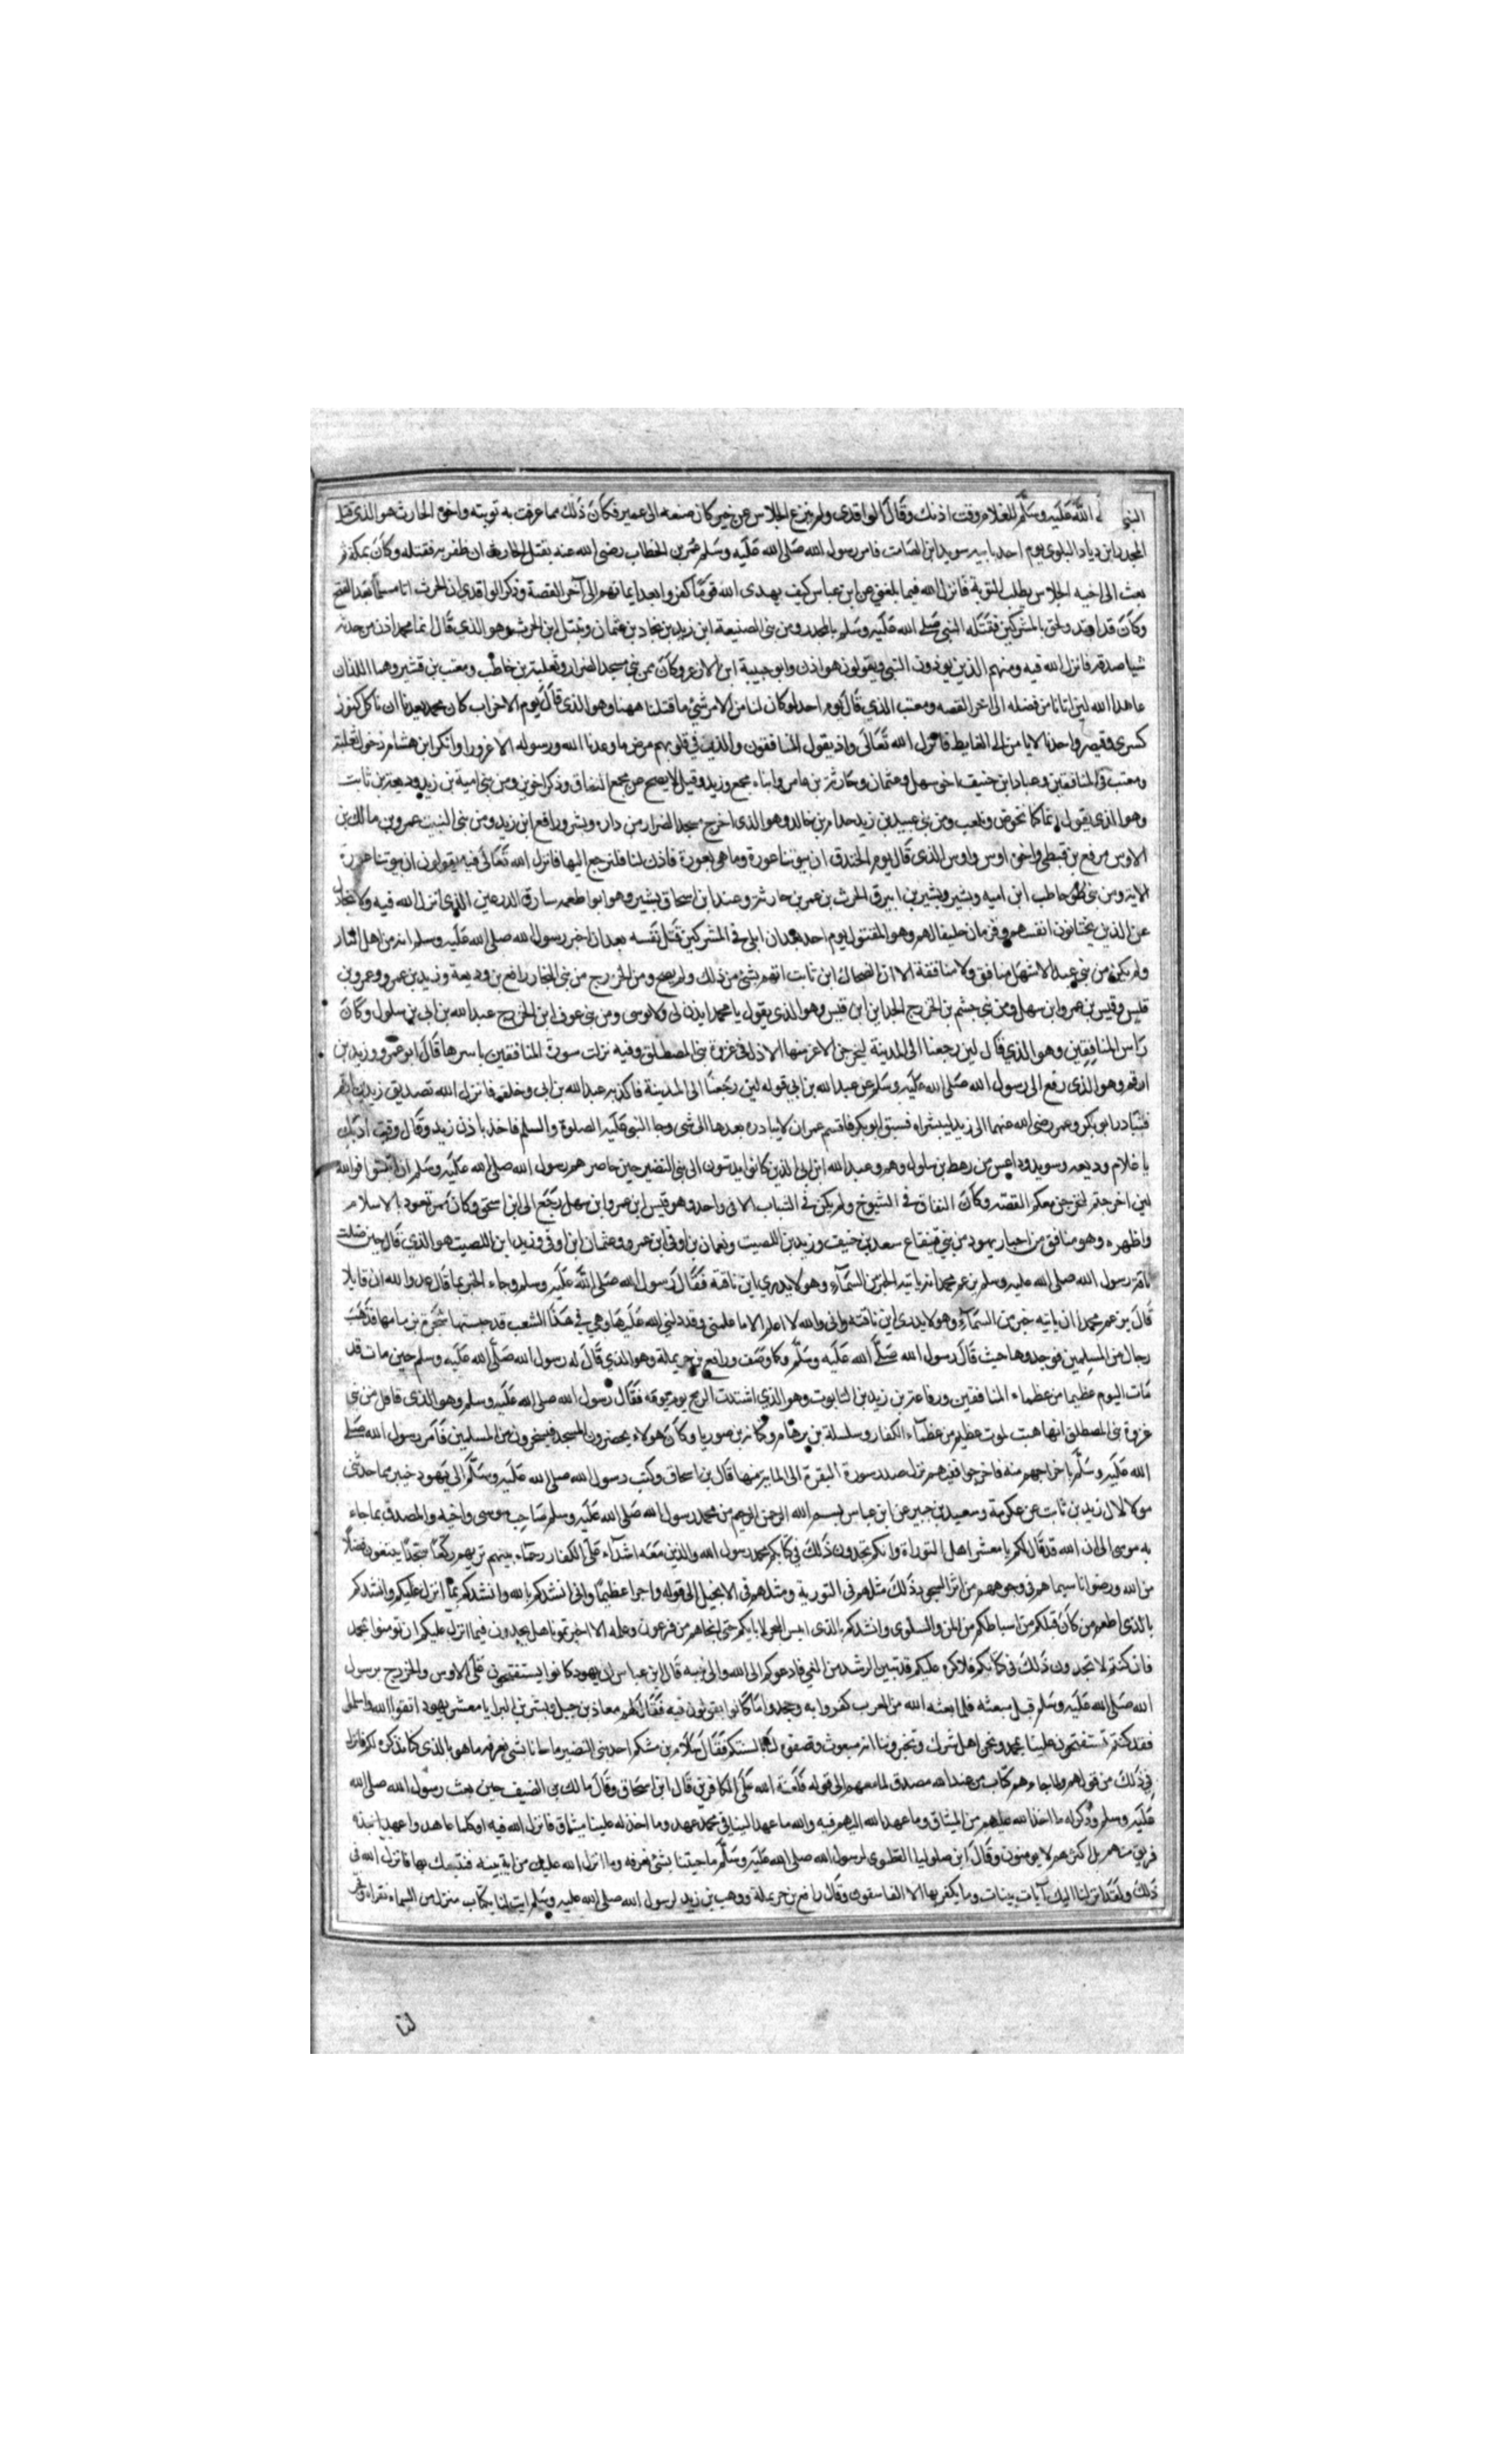 النبي الله عليه وسلم للغلام وقت اذنك وقال الواقدي ولم ينزع الجلاس عن خير كان صنعه الى عمير فكان ذلك مما عرفت به توبته واخوه الحارث هو الذي قتل
المجدر ابن دياد البلوي يوم احد بابيه سويد ابن الصامت فامر رسول الله صلى الله عليه وسلم عمر بن الخطاب رضي الله عنه بقتل الحارث ان ظفر به فقتله وكان بمكة ثم
بعث الى اخيه الجلاس يطلب التوبة فانزل الله فيما بلغني عن ابن عباس كيف يهدي الله قوما كفروا بعد ايمانهم الى آخر القصة وذكر الواقدي ان الحرث اتا مسلما بعد الفتح
وكان قد ارتد ولحق بالمشركين فقتله النبي صلى الله عليه وسلم بالمجدر ومن بني الصنيعة ابن زيد بجاد بن عثمان ونبتل ابن الحرث وهو الذي قال انما محمد اذن من حدثه
شيا صدقه فانزل الله فيه ومنهم الذين يوذون النبي ويقولون هو اذن وابو حبيبة ابن الازعر وكان ممن بني مسجد الضرار وثعلبة بن حاطب ومعتب بن قشير وهما اللذان
عاهدا الله لين اتانا من فضله الى اخر القصه ومعتب الذي قال يوم احد لو كان لنا من الامر شئ ما قتلنا ههنا وهو الذي قال يوم الاحزاب كان محمد يعدنا ان ناكل كنوز
كسرى وقيصر واحدنا لا يامن الى الغايط فانزل الله تعالى واذ يقول المنافقون والذين في قلوبهم مرض ما وعدنا الله ورسوله الا غرورا وانكر ابن هشام دخول ثعلبة
ومعتب في المنافقين وعباد ابن حنيف اخو سهل وعثمان وحارثة بن عامر وابناه مجمع وزيد وقيل لا يصح عن مجمع النفاق وذكر اخرين ومن بني امية بن زيد وديعة بن ثابت
وهو الذي يقول انما كنا نخوض ونلعب ومن بني عبيد بن زيد خدام بن خالد وهو الذي اخرج مسجد الضرار من داره وبشر ورافع ابن زيد ومن بني النبيت عمرو بن مالك بن
الاوس مربع بن قيظي واخوه اوس واوس الذي قال يوم الخندق ان بيوتنا عورة وما هي بعورة فاذن لنا فلنرجع اليها فانزل الله تعالى فيه يقولون ان بيوتنا عورة
الاية ومن بني ظفر حاطب ابن اميه وبشير وبشير بن ابيرق الحرث بن عمر بن حارثة وعند ابن اسحاق بشير وهو ابو طعمه سارق الدرعين الذي انزل الله فيه ولا تجادل
عن الذين يختانون انفسهم وقزمان حليف لهم وهو المقتول يوم احد بعد ان ابلى في المشركين قتل نفسه بعد ان اخبر رسول الله صلى الله عليه وسلم انه من اهل النار
ولم يكن من بني عبد الاشهل منافق ولا منافقة الا ان الضحاك ابن ثابت اتهم بشئ من ذلك ولم يصح ومن الخزرج من بني النجار رافع بن وديعة وزيد بن عمرو وعمرو بن
قليس وقيس بن عمرو ابن سهل ومن بني جشم بن الخزرج الجد ابن قيس وهو الذي يقول يا محمد ايذن لي ولا تفتني ومن بني عوف ابن الخزرج عبد الله بن ابي بن سلول وكان
راس المنافقين وهو الذي قال لين رجعنا الى المدينة ليخرجن الاعز منها الاذل في غزوة بني المصطلق وفيه نزلت سورة المنافقين باسرها قال ابو عمرو وزيد بن
ارقم وهو الذي رفع الى رسول الله صلى الله عليه وسلم عن عبد الله بن ابي قوله لين رجعنا الى المدينة فاكذبه عبد الله بن ابي وحلف فانزل الله تصديق زيد بن ارقم
فتبادر ابو بكر وعمر رضي الله عنهما الى زيد ليبشراه فسبق ابو بكر فاقسم عمر ان لا يبادره بعدها الى شي وجا النبي عليه الصلوة والسلم فاخذ باذن زيد وقال وفت اذنك
يا غلام ووديعه وسويد وداعس من رهط بن سلول وهم وعبد الله ابن ابي الذين كانوا يدسون الى بني النضير حين حاصرهم رسول الله صلى الله عليه وسلم ان اثبتوا فوالله
لين اخرجتم لنخرجن معكم القصه وكان النفاق في الشيوخ ولم يكن في الشباب الا في واحد وهو قيس ابن عمرو ابن سهل رجع الى ابن اسحق وكان ممن تعوذ بالاسلام
واظهره وهو منافق من احبار يهود من بني قينقاع سعد بن حنيف وزيد بن اللصيت ونعمان بن اوفى ابن عمرو وعثمان ابن اوفى وزيد ابن اللصيت هو الذي قال حين ضلت
ناقة رسول الله صلى الله عليه وسلم يزعم محمد انه ياتيه الخبر من السماء وهو لا يدري اين ناقته فقال رسول الله صلى الله عليه وسلم وجاء الخبر بما قال عدو الله ان قايلا
قال يزعم محمد ان ياتيه خبر من السماء وهو لا يدري اين ناقته واني والله لا اعلم الا ما علمني وقد دلني الله عليها وهي في هذا الشعب قد حبستها شجرة بزمامها فذهب
رجال من المسلمين فوجدوها حيث قال رسول الله صلى الله عليه وسلم وكما وصف ورافع بن حريملة وهو الذي قال له رسول الله صلى الله عليه وسلم حين مات قد
مات اليوم عظيما من عظماء المنافقين ورفاعة بن زيد بن التابوت وهو الذي اشتدت الريح يوم موته فقال رسول الله صلى الله عليه وسلم وهو الذي قافل من بني
غزوة بني المصطلق انها هبت لموت عظيم من عظماء الكفار وسلسلة بن برهام وكنانة بن صوريا وكان هولاء يحضرون المسجد فيسخرون من المسلمين فامر رسول الله صلى
الله عليه وسلم باخراجهم منه فاخرجوا ففيهم نزل صدر سورة البقرة الى الماية منها قال بن اسحاق وكتب رسول الله صلى الله عليه وسلم الى يهود خيبر مما حدثني
مولا لال زيد بن ثابت عن عكرمة وسعيد بن جبير عن ابن عباس بسم الله الرحمن الرحيم من محمد رسول الله صلى الله عليه وسلم صاحب موسى واخيه والمصدق بما جاء
به موسى الى ان الله قد قال لكم يا معشر اهل التوراة وانكم تجدون ذلك في كتابكم محمد رسول الله والذين معه اشداء على الكفار رحماء بينهم تريهم ركعا سجدا يبتغون فضلا
من الله ورضوانا سيماهم في وجوههم من اثر السجود ذلك مثلهم في التورية ومثلهم في الانجيل الى قوله واجرا عظيما واني انشدكم بالله وانشدكم بما انزل عليكم وانشدكم
بالذي اطعم من كان قبلكم من اسباطكم من المن والسلوى وانشدكم بالذي ايبس البحر لابايكم حتى انجاهم من فرعون وعمله الا اخبرتمونا هل تجدون فيما انزل عليكم ان تومنوا بمحمد
فان كنتم لا تجدون ذلك في كتابكم فلا كره عليكم قد تبين الرشد من الغي فادعوكم الى الله والى نبيه قال ابن عباس ان يهود كانوا يستفتحون على الاوس والخزرج برسول
الله صلى الله عليه وسلم قبل مبعثه فلما بعثه الله من العرب كفروا به وجحدوا ما كانوا يقولون فيه فقال لهم معاذ بن جبل وبشر بن البرا يا معشر يهود اتقوا الله واسلموا
فقد كنتم تستفتحون علينا بمحمد ونحن اهل شرك وتخبروننا انه مبعوث وتصفونه لنا بالسنتكم فقال سلام بن مشكم احد بني النضير ما جانا بشي نعرفه ما هو بالذي كنا نذكره لكم فانزل
في ذلك من قولهم ولما جاءهم كتاب من عند الله مصدق لما معهم الى قوله فلعنة الله على الكافرين قال ابن اسحاق وقال مالك بن الضيف حين بعث رسول الله صلى الله
عليه وسلم وذكر له ما اخذ الله عليهم من الميثاق وما عهد الله اليهم فيه والله ما عهد الينا في محمد عهد وما اخذ له علينا ميثاق فانزل الله فيه اوكلما عاهدوا عهدا نبذه
فريق منهم بل اكثرهم لا يومنون وقال ابن صلوبا الفطيوني لرسول الله صلى الله عليه وسلم ما جيتنا بشئ نعرفه وما انزل الله عليك من اية بينه فنتبعك بها فانزل الله في
ذلك ولقد انزلنا اليك آيات بينات وما يكفر بها الا الفاسقون وقال رافع بن حريملة ووهب بن زيد لرسول الله صلى الله عليه وسلم ايتنا بكتاب منزل من السماء نقراه وفجر
لنا